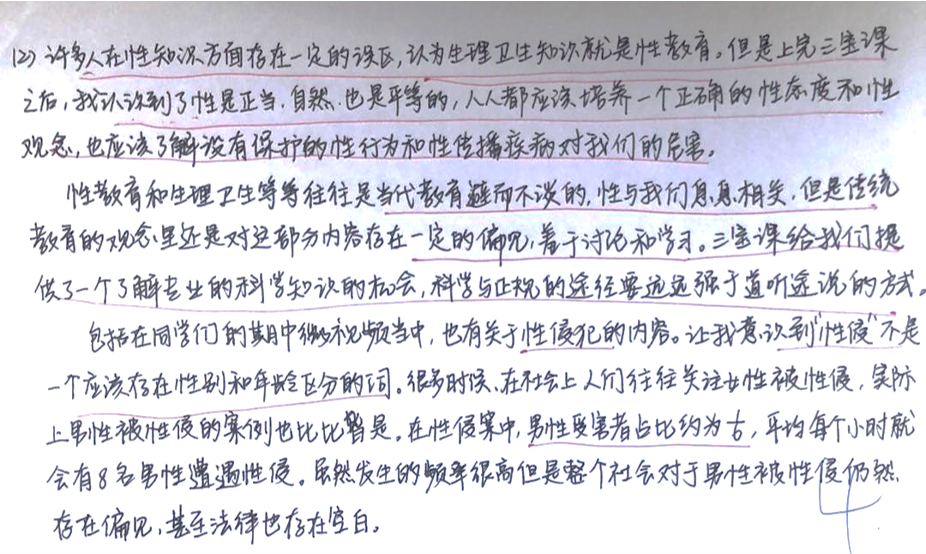 (2) 许多人在性知识方面存在一定的误区，认为生理卫生知识就是性教育。但是上完三宝课
之后，我认识到了性是正当、自然、也是平等的，人人都应该培养一个正确的性态度和性
观念，也应该了解没有保护的性行为和性传播疾病对我们的危害。
性教育和生理卫生等等往往是当代教育避而不谈的，性与我们息息相关，但是传统
教育的观念里还是对这部分内容存在一定的偏见，羞于讨论和学习。三宝课给我们提
供了一个了解专业的科学知识的机会，科学与正规的途径要远远强于道听途说的方式。
包括在同学们的期中微视频当中，也有关于性侵犯的内容。让我意识到“性侵”不是
一个应该存在性别和年龄区分的词。很多时候、在社会上人们往往关注女性被性侵，实际
上男性被性侵的案例也比比皆是。在性侵案中，男性受害者占比约为，平均每个小时就
会有8名男性遭遇性侵。虽然发生的频率很高但是整个社会对于男性被性侵仍然
存在偏见，甚至法律也存在空白。